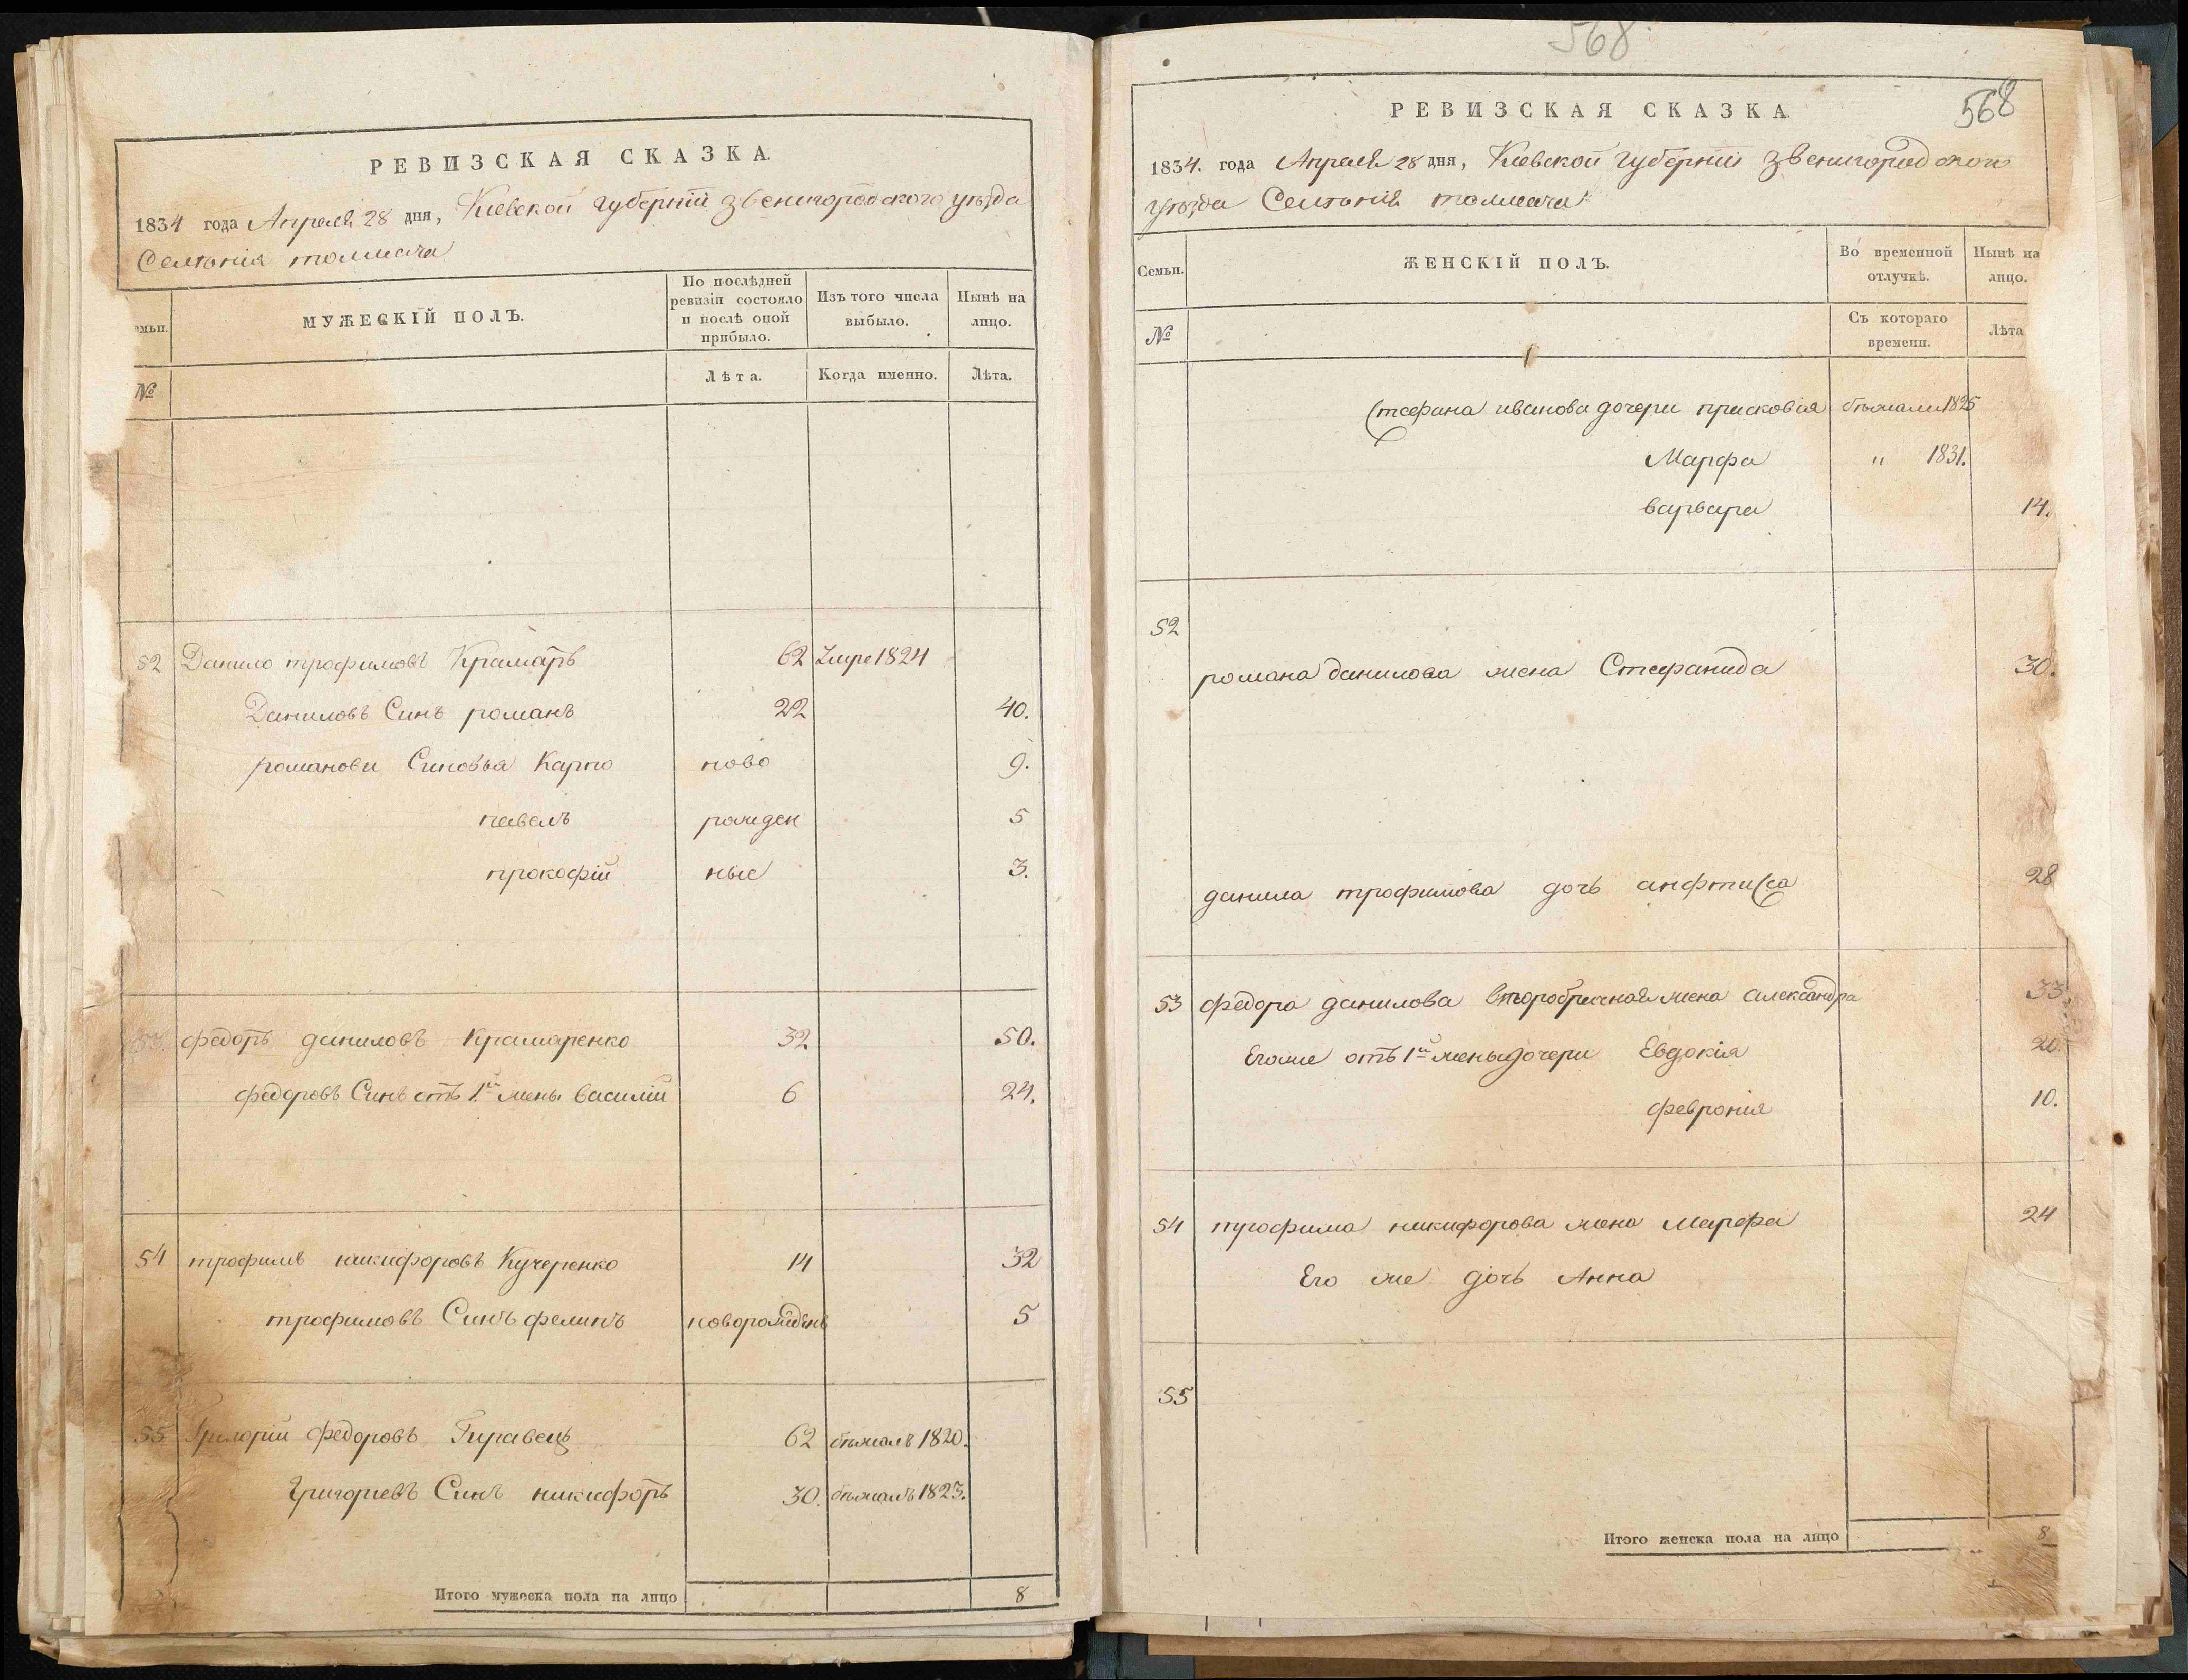 РЕВИЗСКАЯ СКАЗКА.
1834 года Апреля 28 дня, Киевской губерніи звенигородского уѣзда
Селенія толмача
Семьи.
МУЖЕСКІЙ ПОЛЪ.
По послѣдней ревизіи состояло и послѣ оной прибыло.
Изъ того числа выбыло.
Нынѣ на лицо.
№
Лѣта.
Когда именно.
Лѣта.
52 Данило трофимовъ Крамаръ 62 Умре 1824
Даниловъ Синъ романъ 22 40.
романови Синовья Карпо ново 9.
павелъ рожден 5
прокофій ные 3.
53 федоръ даниловъ Крамаренко 32 50.
федоровъ Синъ отъ 1й жены василій 6 24.
54 трофимъ никифоровъ Кучеренко 14 32
трофимовъ Синъ филипъ новорожденъ 5
55 Григорій федоровъ 62 бѣжалъ 1820.
Григориевъ Синъ никифоръ 30. бѣжалъ 1823.
Итого мужеска пола на лицо 8
568
568
РЕВИЗСКАЯ СКАЗКА
1834. года Апреля 28 дня, Киевской губерніи звенигородского
уѣзда Селенія толмача
Семьи.
ЖЕНСКІЙ ПОЛЪ.
Во временной отлучкѣ.
Нынѣ на лицо.
№
Съ котораго времени.
Лѣта
Стефана иванова дочери прасковія бѣжали 1825
Марфа " 1831.
варвара 14.
52
романа данилова жена Стефанида 30.
данила трофимова дочь анфтиса 28
53 федора данилова второбрачная жена александра 33.
Егоже отъ 1й жены дочери Евдокія 20.
феврония 10.
54 трофима никифорова жена Марфа 24
Его же дочь Анна
55
Итого женска пола на лицо 8